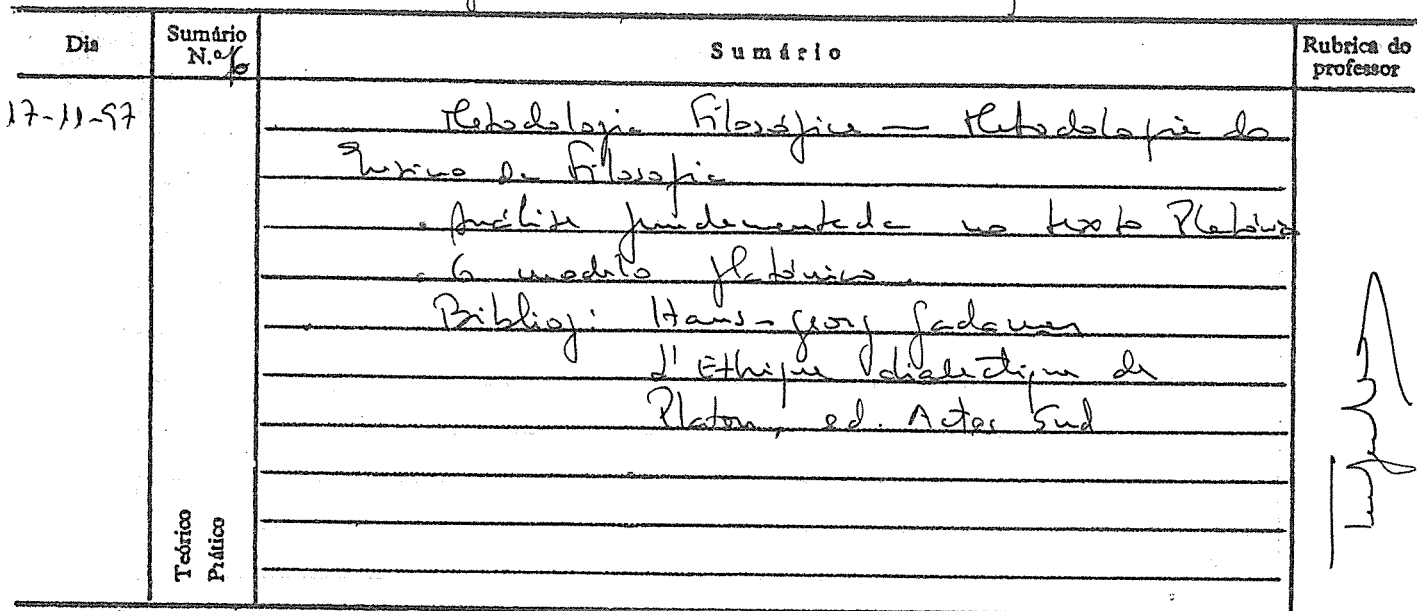 Dia
Sumário N.º 16
Sumário
Rubrica do professor
17-11-97
Metodologia Filosófica — Metodologia do
Ensino da Filosofia
. Análise fundamentada no texto Platónico
. O modelo platónico.
Bibliog: Hans-Georg Gadamer
L'Ethique dialectique de
Platon, ed. Actes Sud
Teórico
Prático